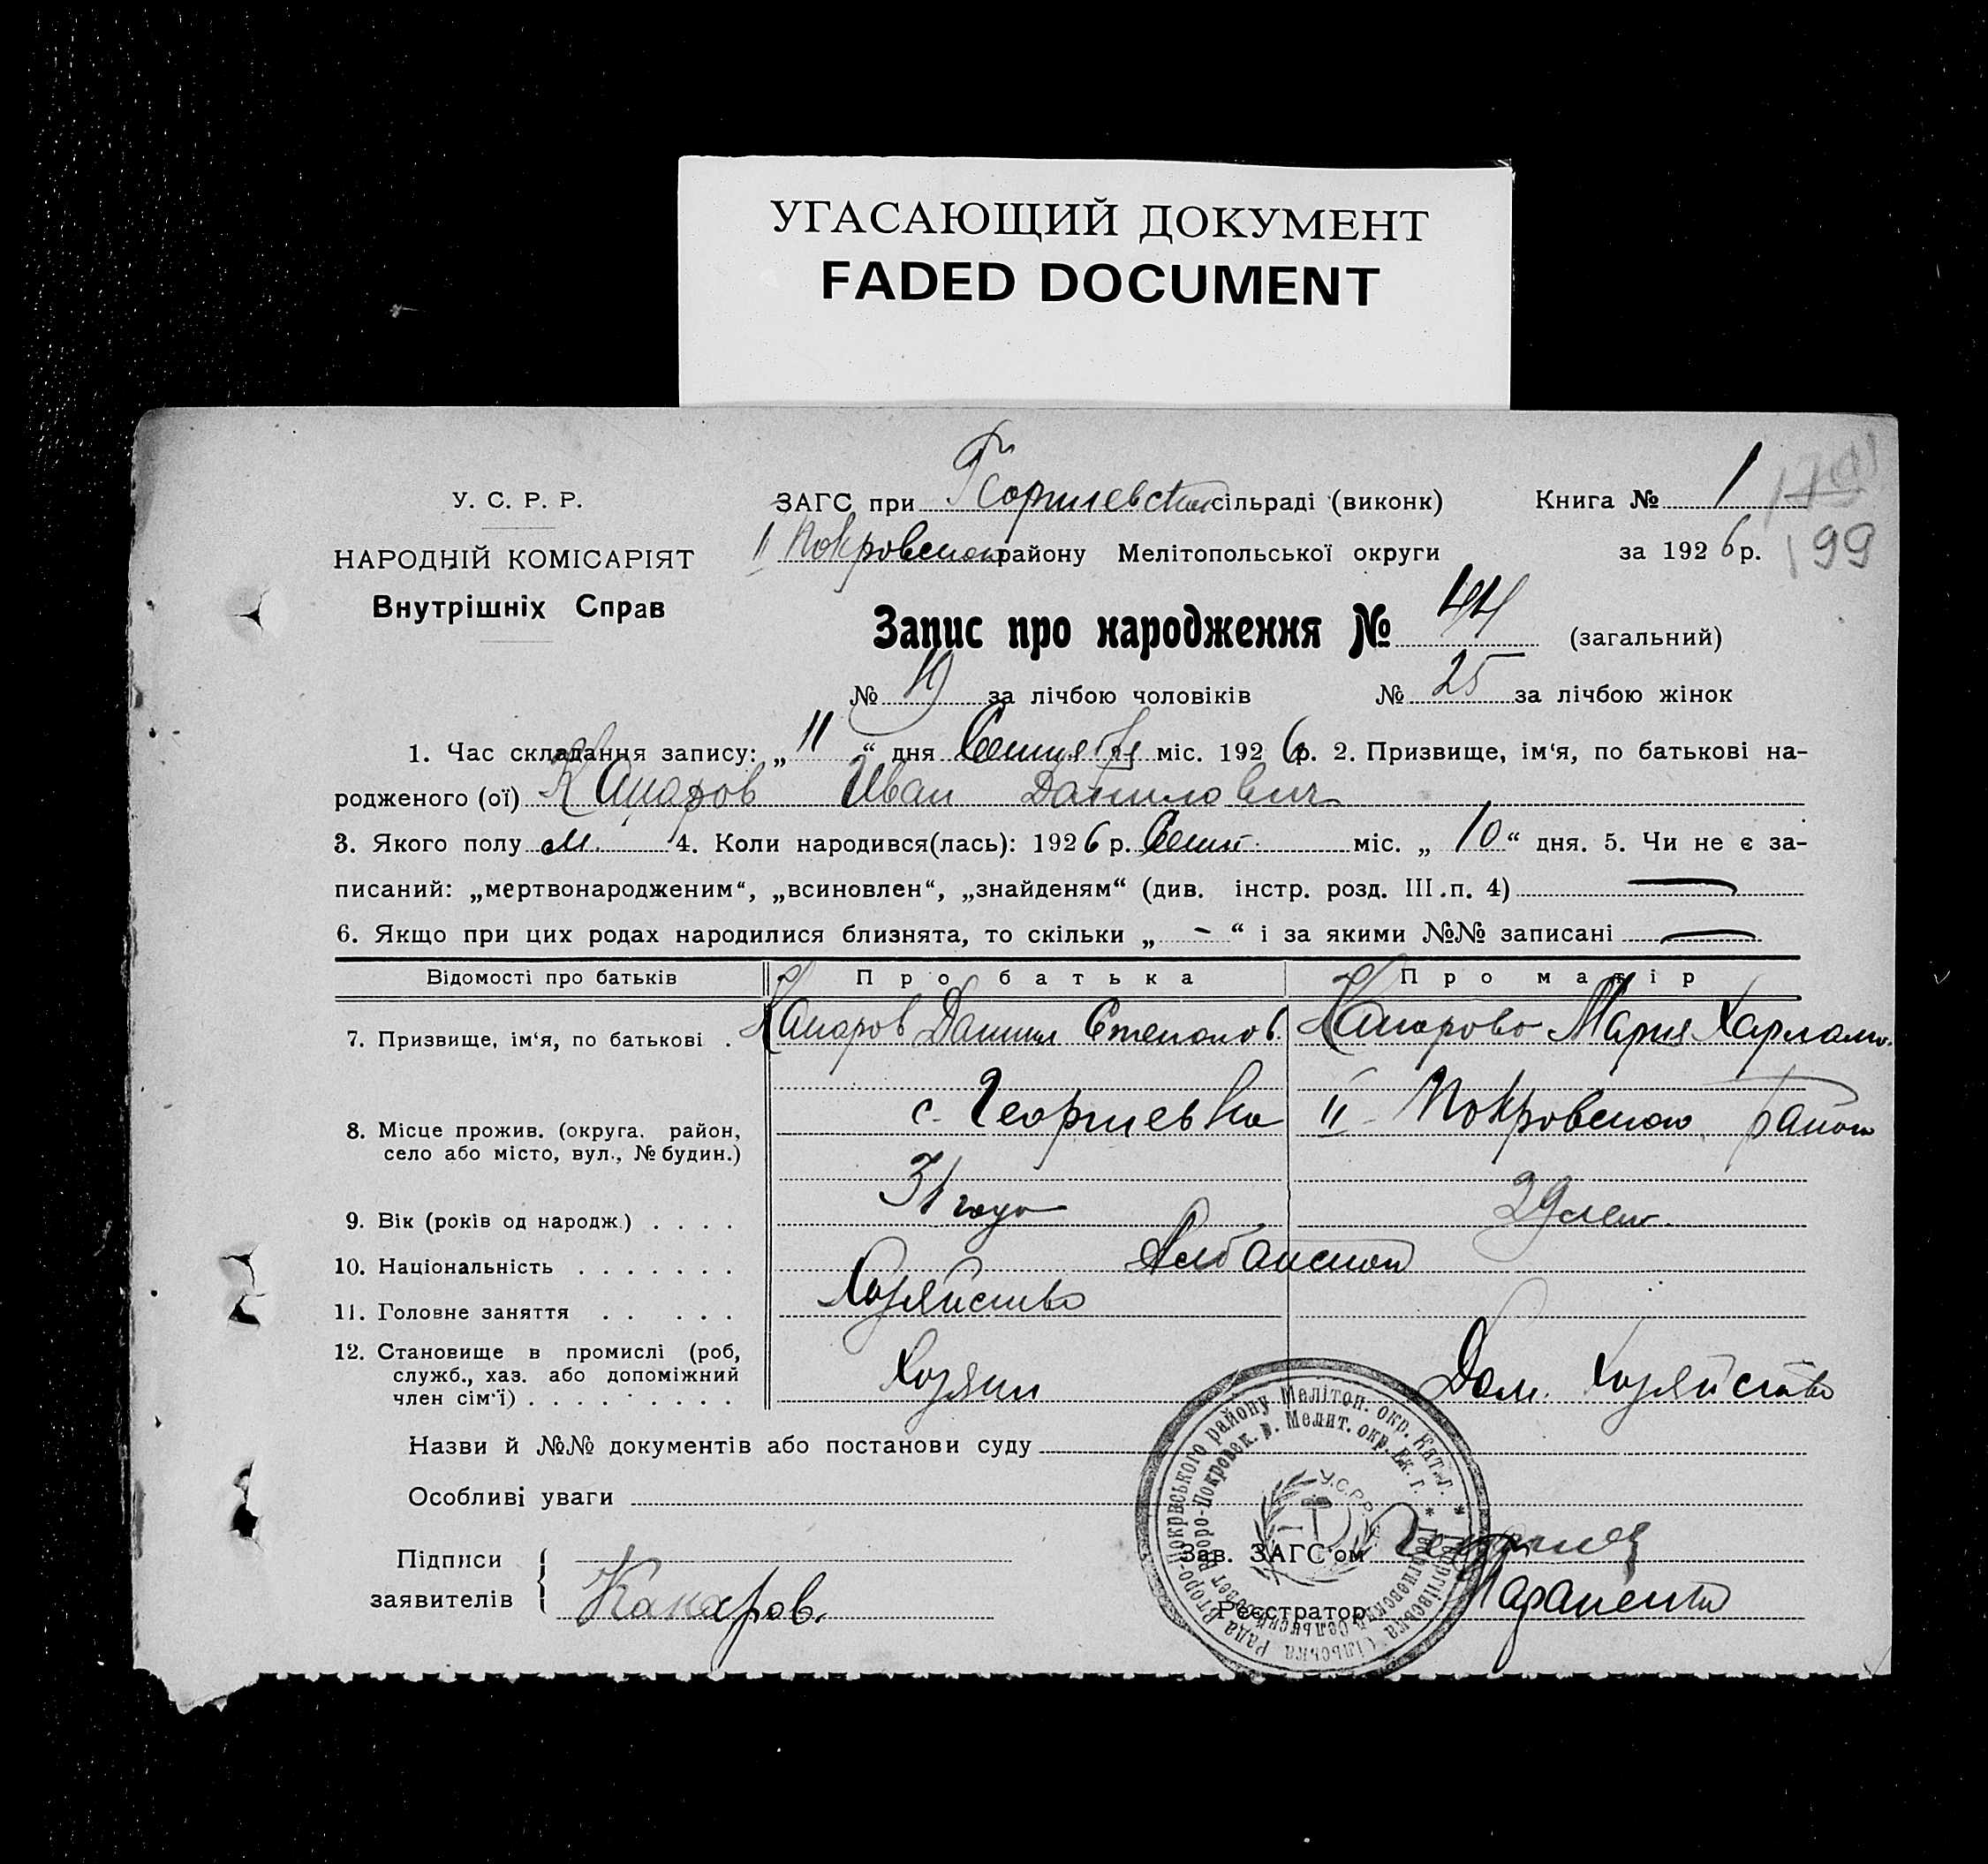 УГАСАЮЩИЙ ДОКУМЕНТ
FADED DOCUMENT
У. С. Р. Р.
НАРОДНІЙ КОМІСАРІЯТ
Внутрішніх Справ
ЗАГС при Георгиевской сільраді (виконк)
II Покровского району Мелітопольської округи
Книга № 1
за 1926 р.
199
Запис про народження № 44 (загальний)
№ 19 за лічбою чоловіків № 25 за лічбою жінок
1. Час складання запису: „ 11 “ дня Сентября міс. 1926 р. 2. Призвище, ім‘я, по батькові на-
родженого (ої) Канаров Иван Данилович
3. Якого полу м. 4. Коли народився(лась): 1926 р. Сент. міс. „ 10 “ дня. 5. Чи не є за-
писаний: „мертвонародженим“, „всиновлен“, „знайденям“ (див. інстр. розд. III.п. 4) —
6. Якщо при цих родах народилися близнята, то скільки „ - “ і за якими №№ записані —
Відомості про батьків Про батька Про матір
7. Призвище, ім‘я, по батькові . Канаров Данил Степанов. Канарова Мария Харламп.
8. Місце прожив. (округа. район, село або місто, вул., № будин.) с. Георгиевка II Покровского района
9. Вік (років од народж.) . . . . 31 года 29 лет.
10. Національність . . . . . . . Албанской
11. Головне заняття . . . . . Хозяйство
12. Становище в промислі (роб, служб., хаз. або допоміжний член сім‘ї) . . . . . . . . Хозяин Дом. хозяйство
Назви й №№ документів або постанови суду
Особливі уваги
Підписи
заявителів
Канаров.
Зав. ЗАГС‘ом
Реєстратор
Георгіївська Сільська Рада Второ-Покрівського району Мелітоп. окр. Кат. г.
Георгиевский Сельский Совет Второ-Покровск. р. Мелит. окр. Ек. г.
У.С.Р.Р.